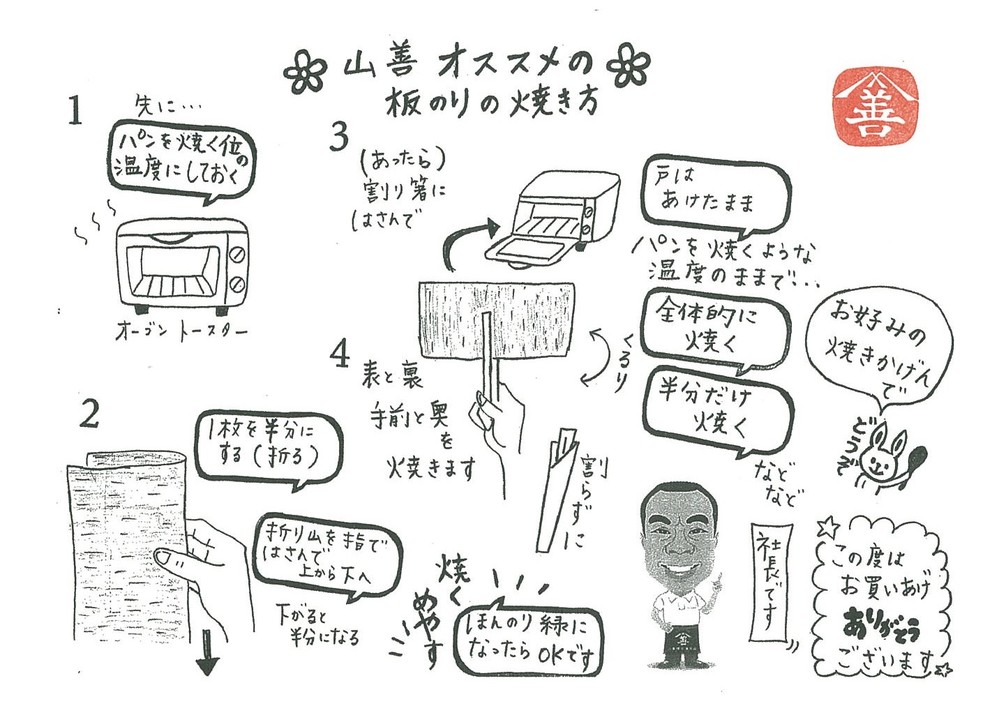 山善 オススメの
板のりの焼き方
善
1
先に…
パンを焼く位の
温度にしておく
オーブン トースター
2
1枚を半分に
する(折る)
折り山を指で
はさんで
上から下へ
下がると
半分になる
3
(あったら)
割り箸に
はさんで
戸は
あけたまま
パンを焼くような
温度のままで…
4
表と裏
手前と奥
を
焼きます
くるり
割らずに
全体的に
焼く
半分だけ
焼く
などなど
お好みの
焼きかげん
で
どうぞ
焼く
めやす
ほんのり緑に
なったら OKです
社長です
この度は
お買いあげ
ありがとう
ございます